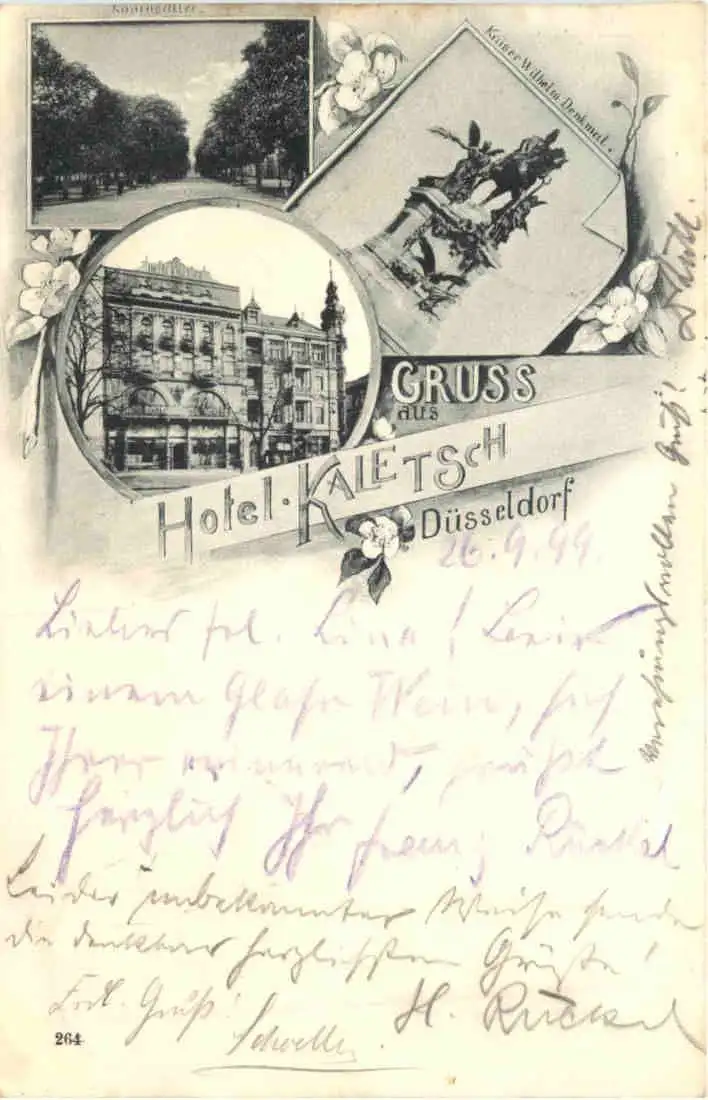 Königsallee.
Kaiser Wilhelm-Denkmal.
GRUSS
aus
Hotel. KALETSCH
Düsseldorf
26.9.99.
Liebes frl. Lina! Beim
einem Glase Wein, sich
Ihrer erinnernd, grüßt
herzlich Ihr Franz Rückel
Leider unbekannter Weise sende
die denkbar herzlichsten Grüße!
H. Rückel
Frdl. Gruß!
264
Gruß!